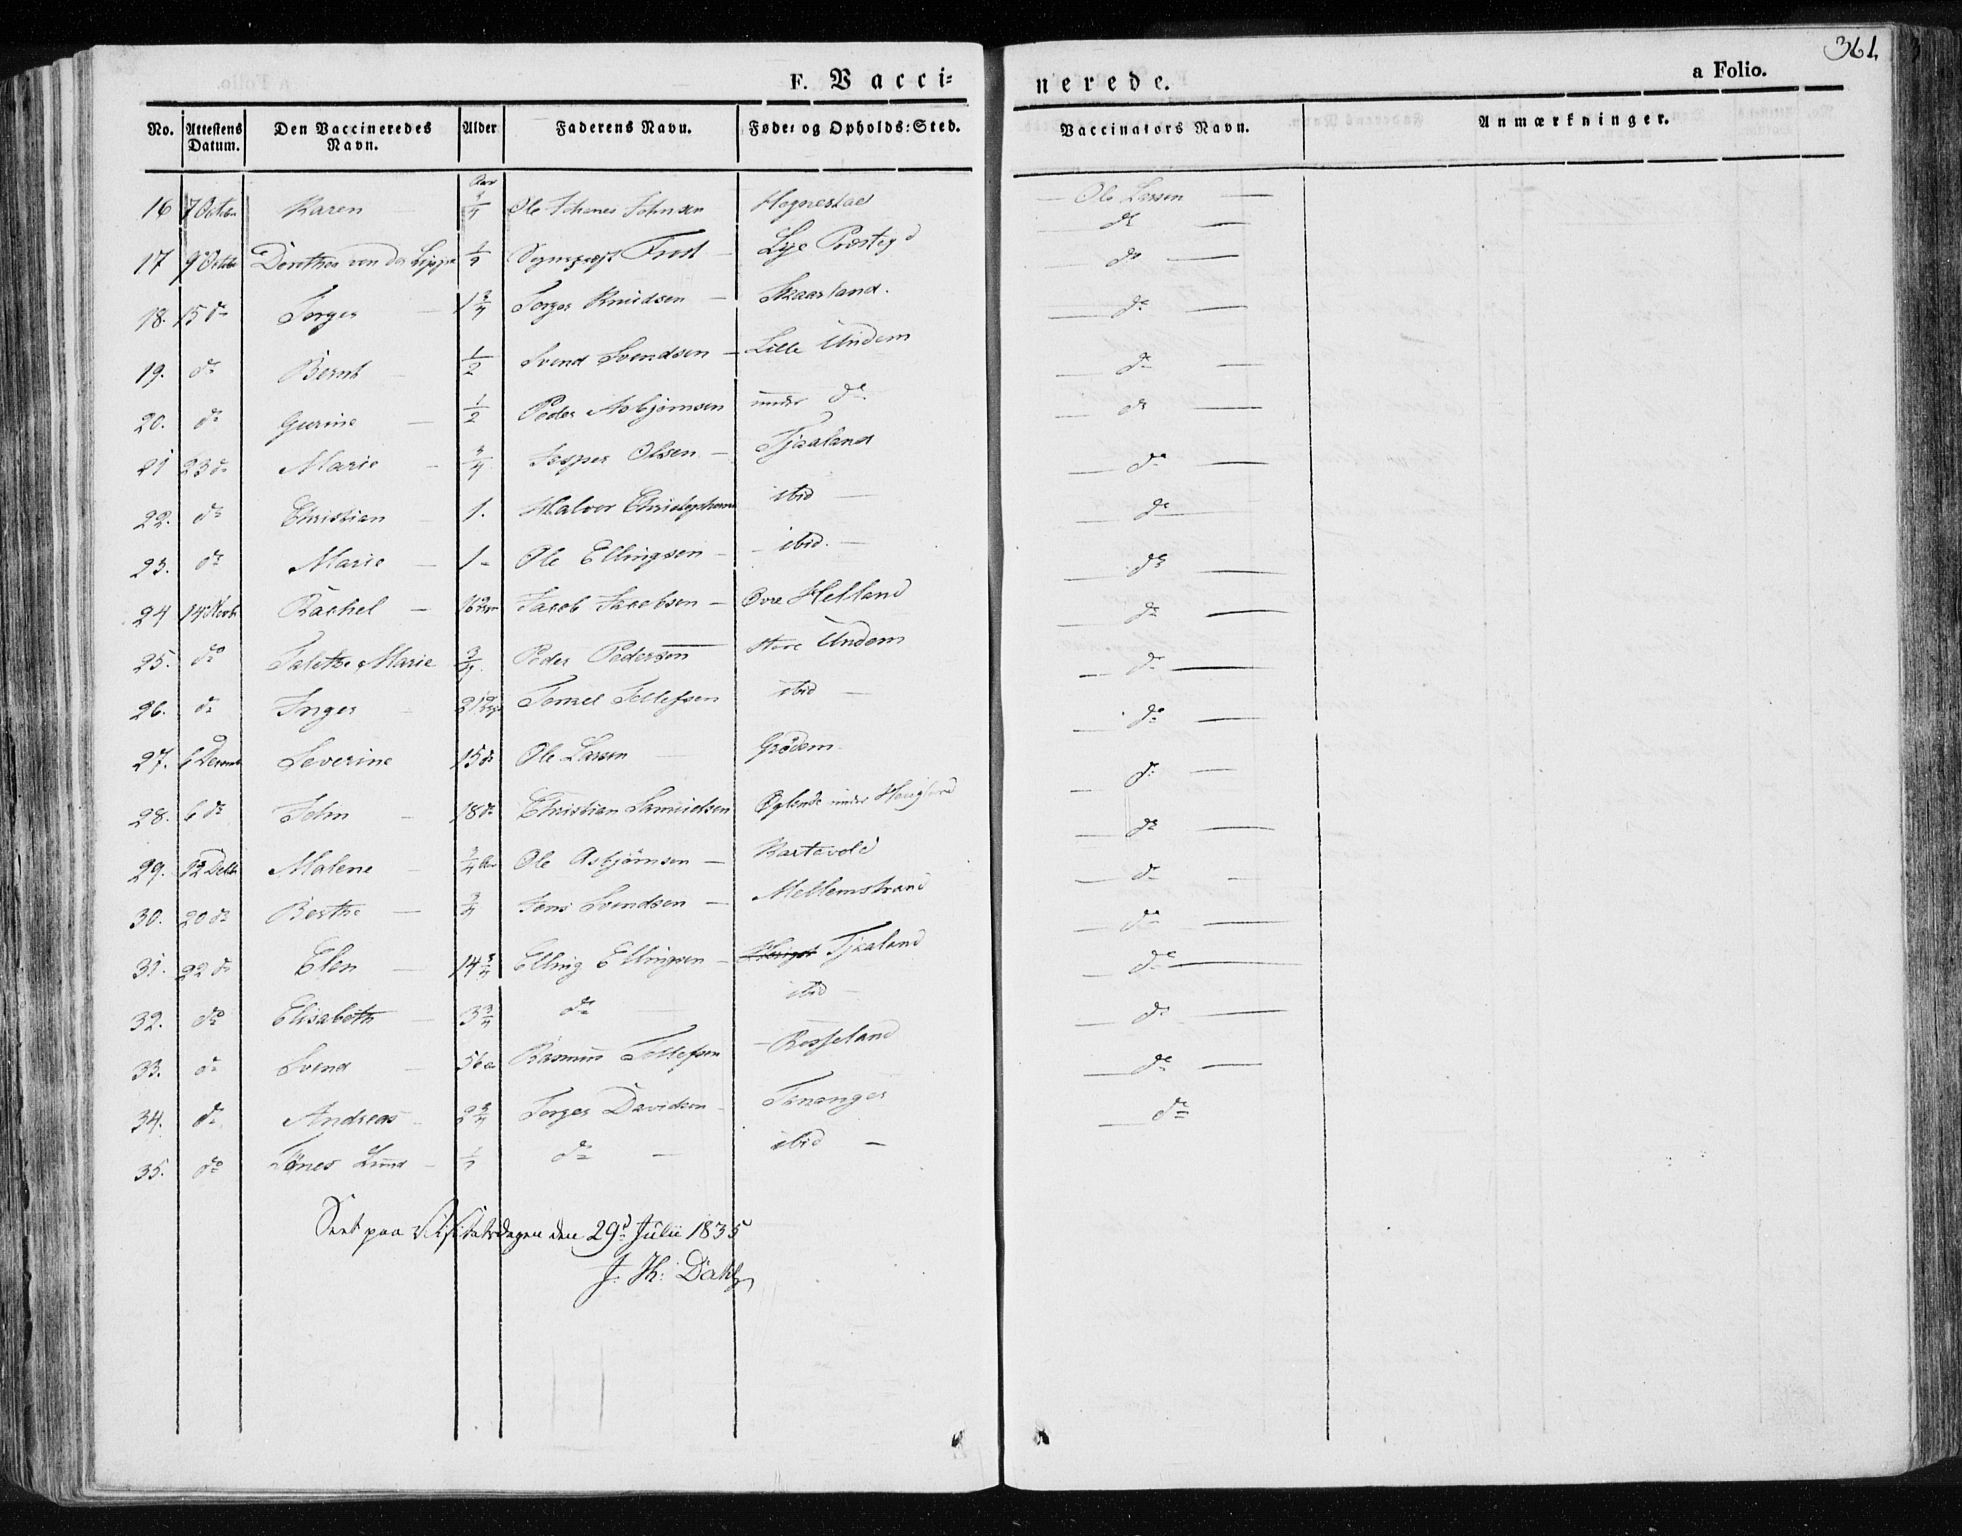 361.
F. Vacci= nerede. a Folio.
No. Attestens Datum. Den Vaccineredes Navn. Alder Faderens Navn. Føde: og Opholds: Sted. Vaccinators Navn. Anmærkninger.
16 7 Octobr Karen Aar 3/4 Ole Johnsen Hognestad Ole Larsen
17 9 Octobr Dorothea von der Lippe 1/2 Sognepræst Frost Lye Præstegd do
do
18. 15 do Torger 1 3/4 Torger Knudsen Skaarland. do
19. do Bernt 1/2 Svend Svendsen Lille Undem do
20. do Gurine 1/2 Peder Asbjörnsen under do do
21 23 do Marie 3/4 Jesper Olsen Tjaaland do
22. do Christian 1. Halvor Christophersen ibid do
23. do Marie 1 Ole Ellingsen ibid. do
24 14 Novbr Rachel 16 Jacob Jacobsen Övre Helland do
25. do Talethe Marie 3/4 Peder Pedersen Store Undem do
26. do Inger 21 Tollefsen ibid do
27. 6 Decemb Severine 15 do Ole Larsen Grödem do
28. 6 do John 18 do Christian Samuelsen under Haugland do
29. 12 Malene 3/4 Aar Ole Asbjörnsen Kartavold do
30. 20 do Berthe 3/4 Jens Svendsen Mellemstrand do
31. 22 do Elen 14 3/4 Elling Ellingsen Tjaaland do
32. do Elisabeth 3 3/4 do ibid do
33. do Svend 56 Rasmus Tollefsen Rosseland do
34. do Andreas 2 3/4 Torger Davidsen Tananger do
35. do Tönes Lund 1/2 do ibid
Seet paa Visitatsdagen den 29d Julii 1835
J. Th: Dahl